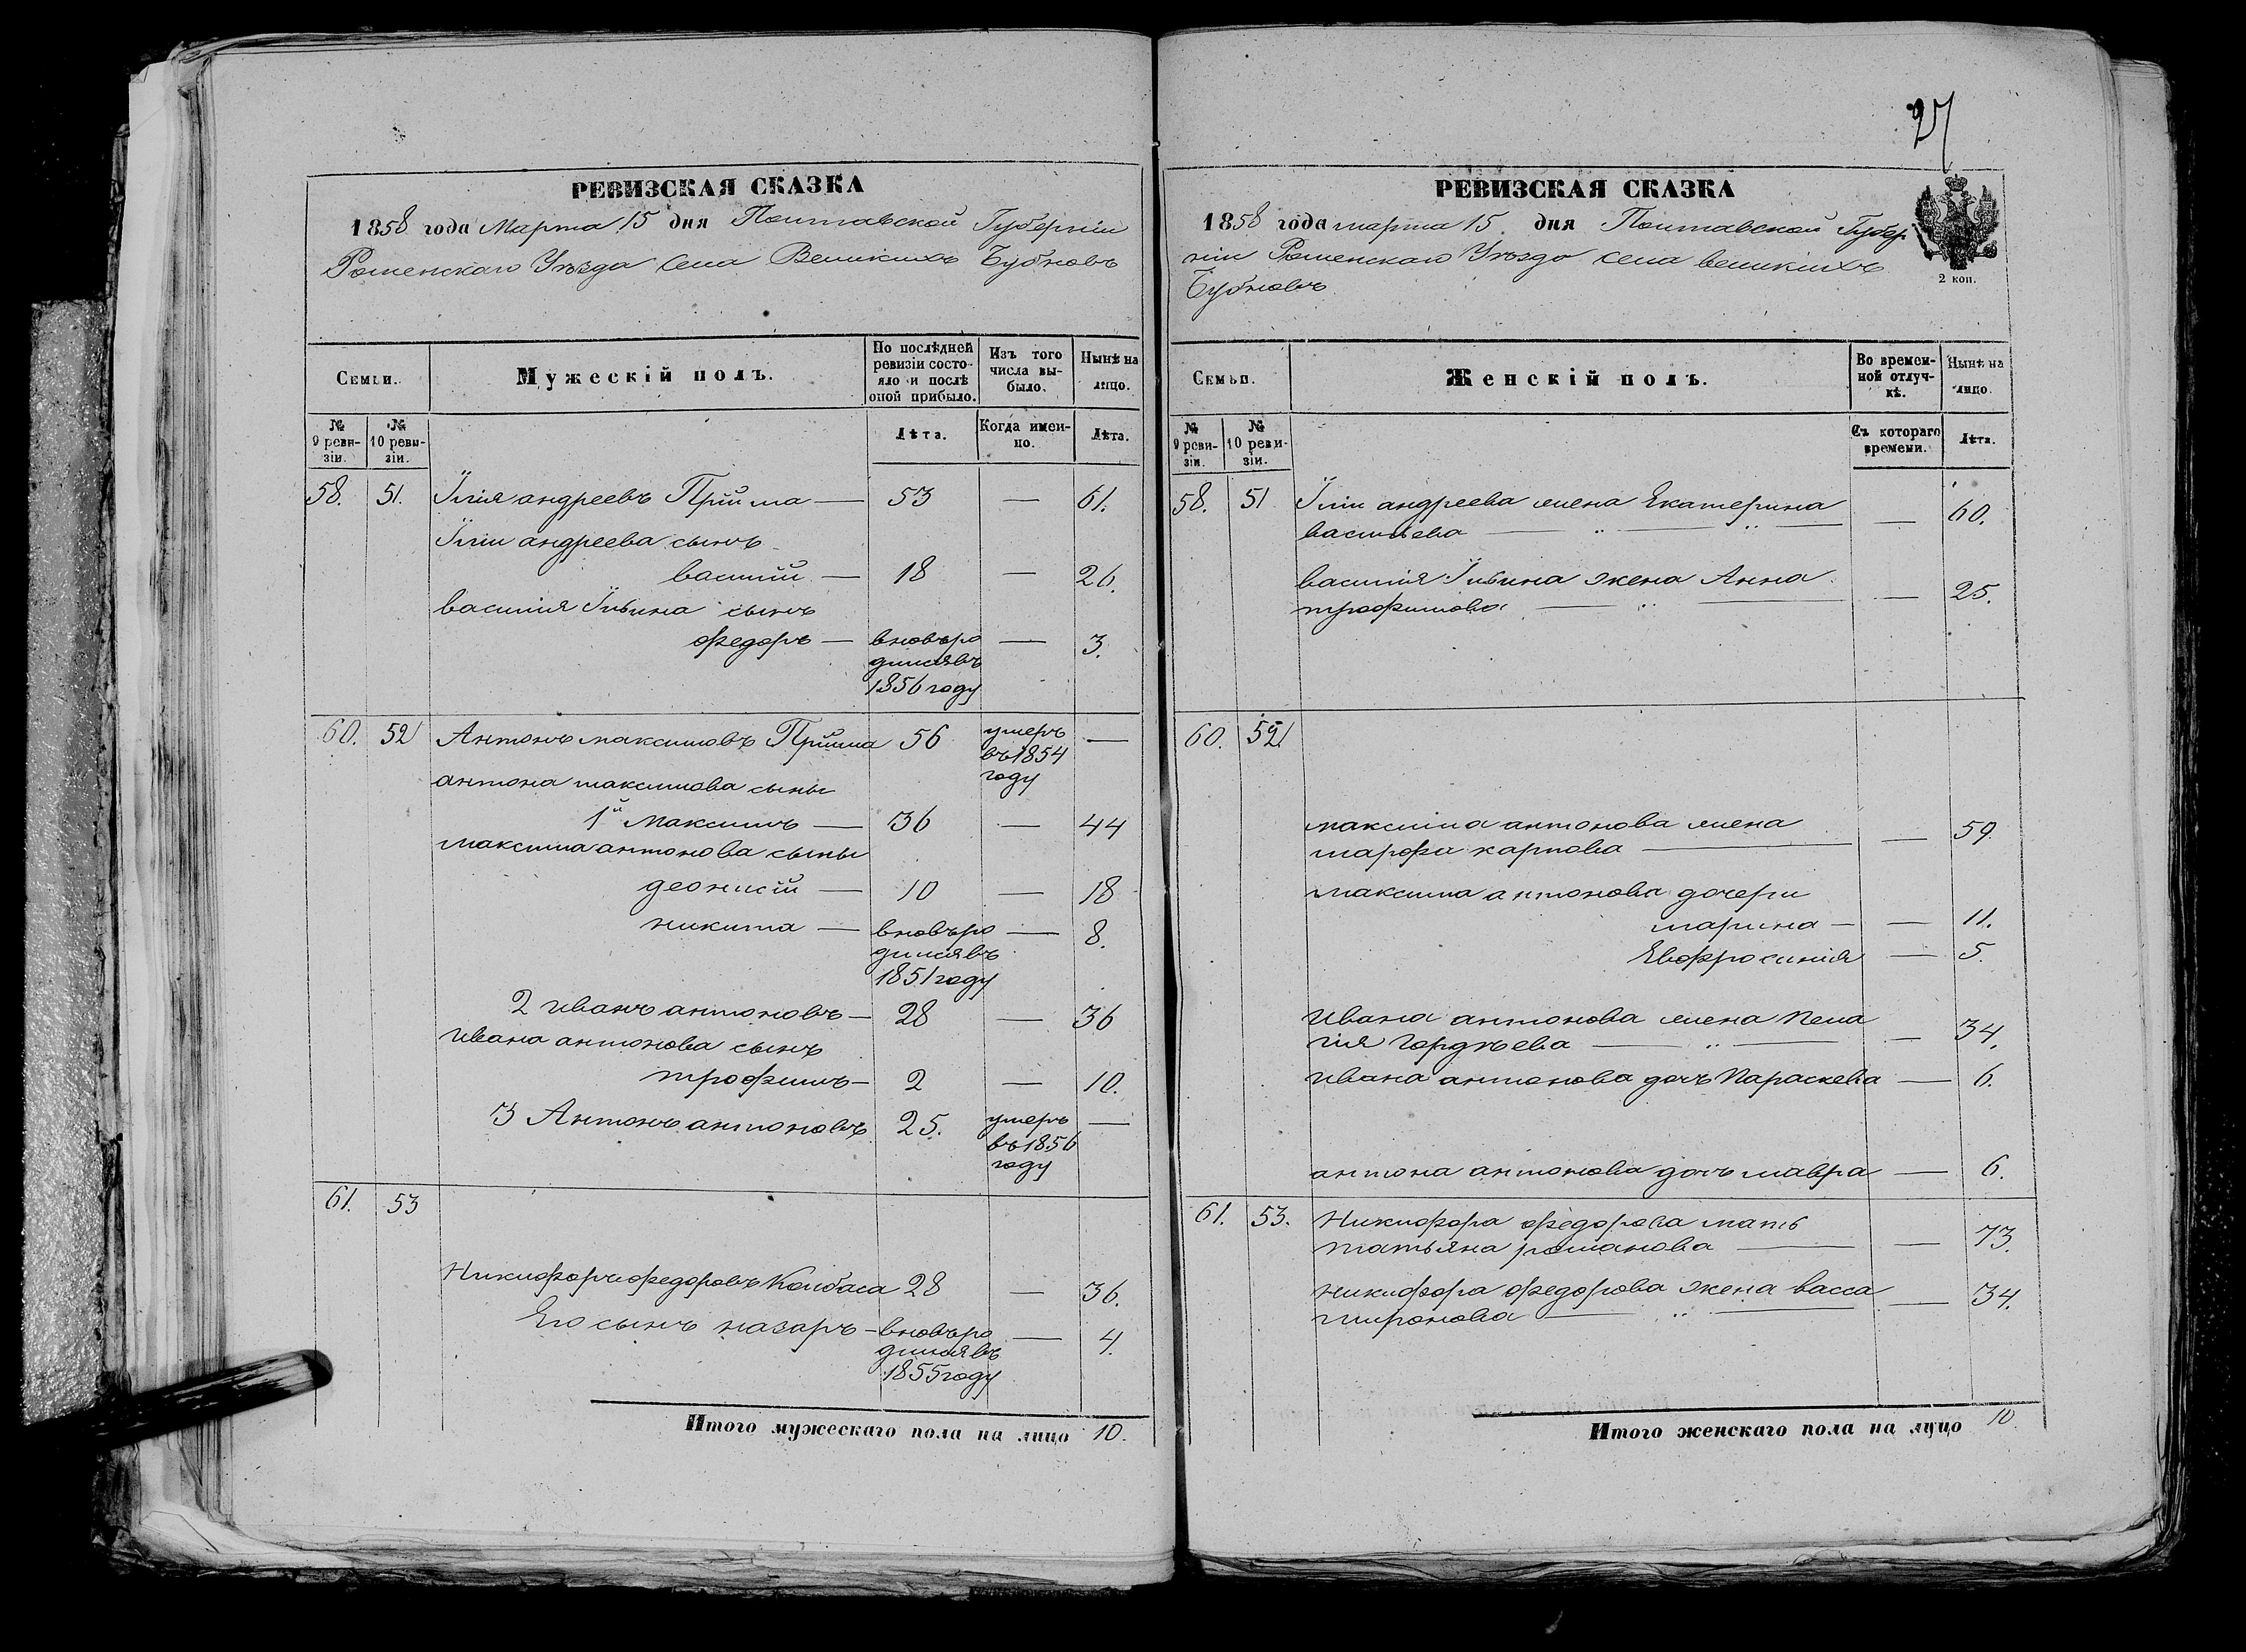 27
РЕВИЗСКАЯ СКАЗКА
1858 года Марта 15 дня Полтавской Губерніи
Роменскаго Уѣзда Села Великихъ Бубновъ
Семьи.
Мужескій полъ.
По послѣдней ревизіи состояло и послѣ оной прибыло.
Изъ того числа выбыло.
Нынѣ на лицо.
№ 9 ревизіи.
№ 10 ревизіи.
Лѣта.
Когда именно.
Лѣта.
58. 51. Илія андреевъ Пріима — 53 — 61.
Иліи андреева сынъ
василій — 18 — 26.
василія Ильина сынъ
федоръ — вновьро — 3.
дилсявъ
1856 году
60. 52 Антонъ максимовъ Пріима 56 умеръ —
въ 1854
году
антона максимова сыны
1й Максимъ — 36 — 44
максима антонова сыны
деонисій — 10 — 18
никита — вновьро — 8.
дилсявъ
1851 году
2 иванъ антоновъ — 28 — 36
ивана антонова сынъ
трофимъ — 2 — 10.
3 Антонъ антоновъ 25. умеръ —
въ 1856
году
61. 53
Никифоръ федоровъ Колбаса 28 — 36.
Его сынъ назаръ — вновьро — 4.
дилсявъ
1855 году
Итого мужескаго пола на лицо 10.
РЕВИЗСКАЯ СКАЗКА
1858 года марта 15 дня Полтавской Губер
ніи Роменскаго Уѣзда села великихъ
Бубновъ
2 коп.
Семьи.
Женскій полъ.
Во временной отлучкѣ.
Нынѣ на лицо.
№ 9 ревизіи.
№ 10 ревизіи.
Съ котораго времени.
Лѣта.
58. 51 Иліи андреева жена Екатерина
васильева — 60.
василія Ильина жена Анна
трофимова — 25.
60. 52
максима антонова жена
марфа карпова — 59.
максима антонова дочери
марина — — 11.
Евфросинія — 5.
Ивана антонова жена пела
гія Гордѣева — 34.
ивана антонова дочь параскева — 6.
антона антонова дочь мавра — 6.
61. 53. Никифора федорова мать
татьяна романова — 73.
никифора федорова жена васса
миронова — 34.
Итого женскаго пола на лицо 10